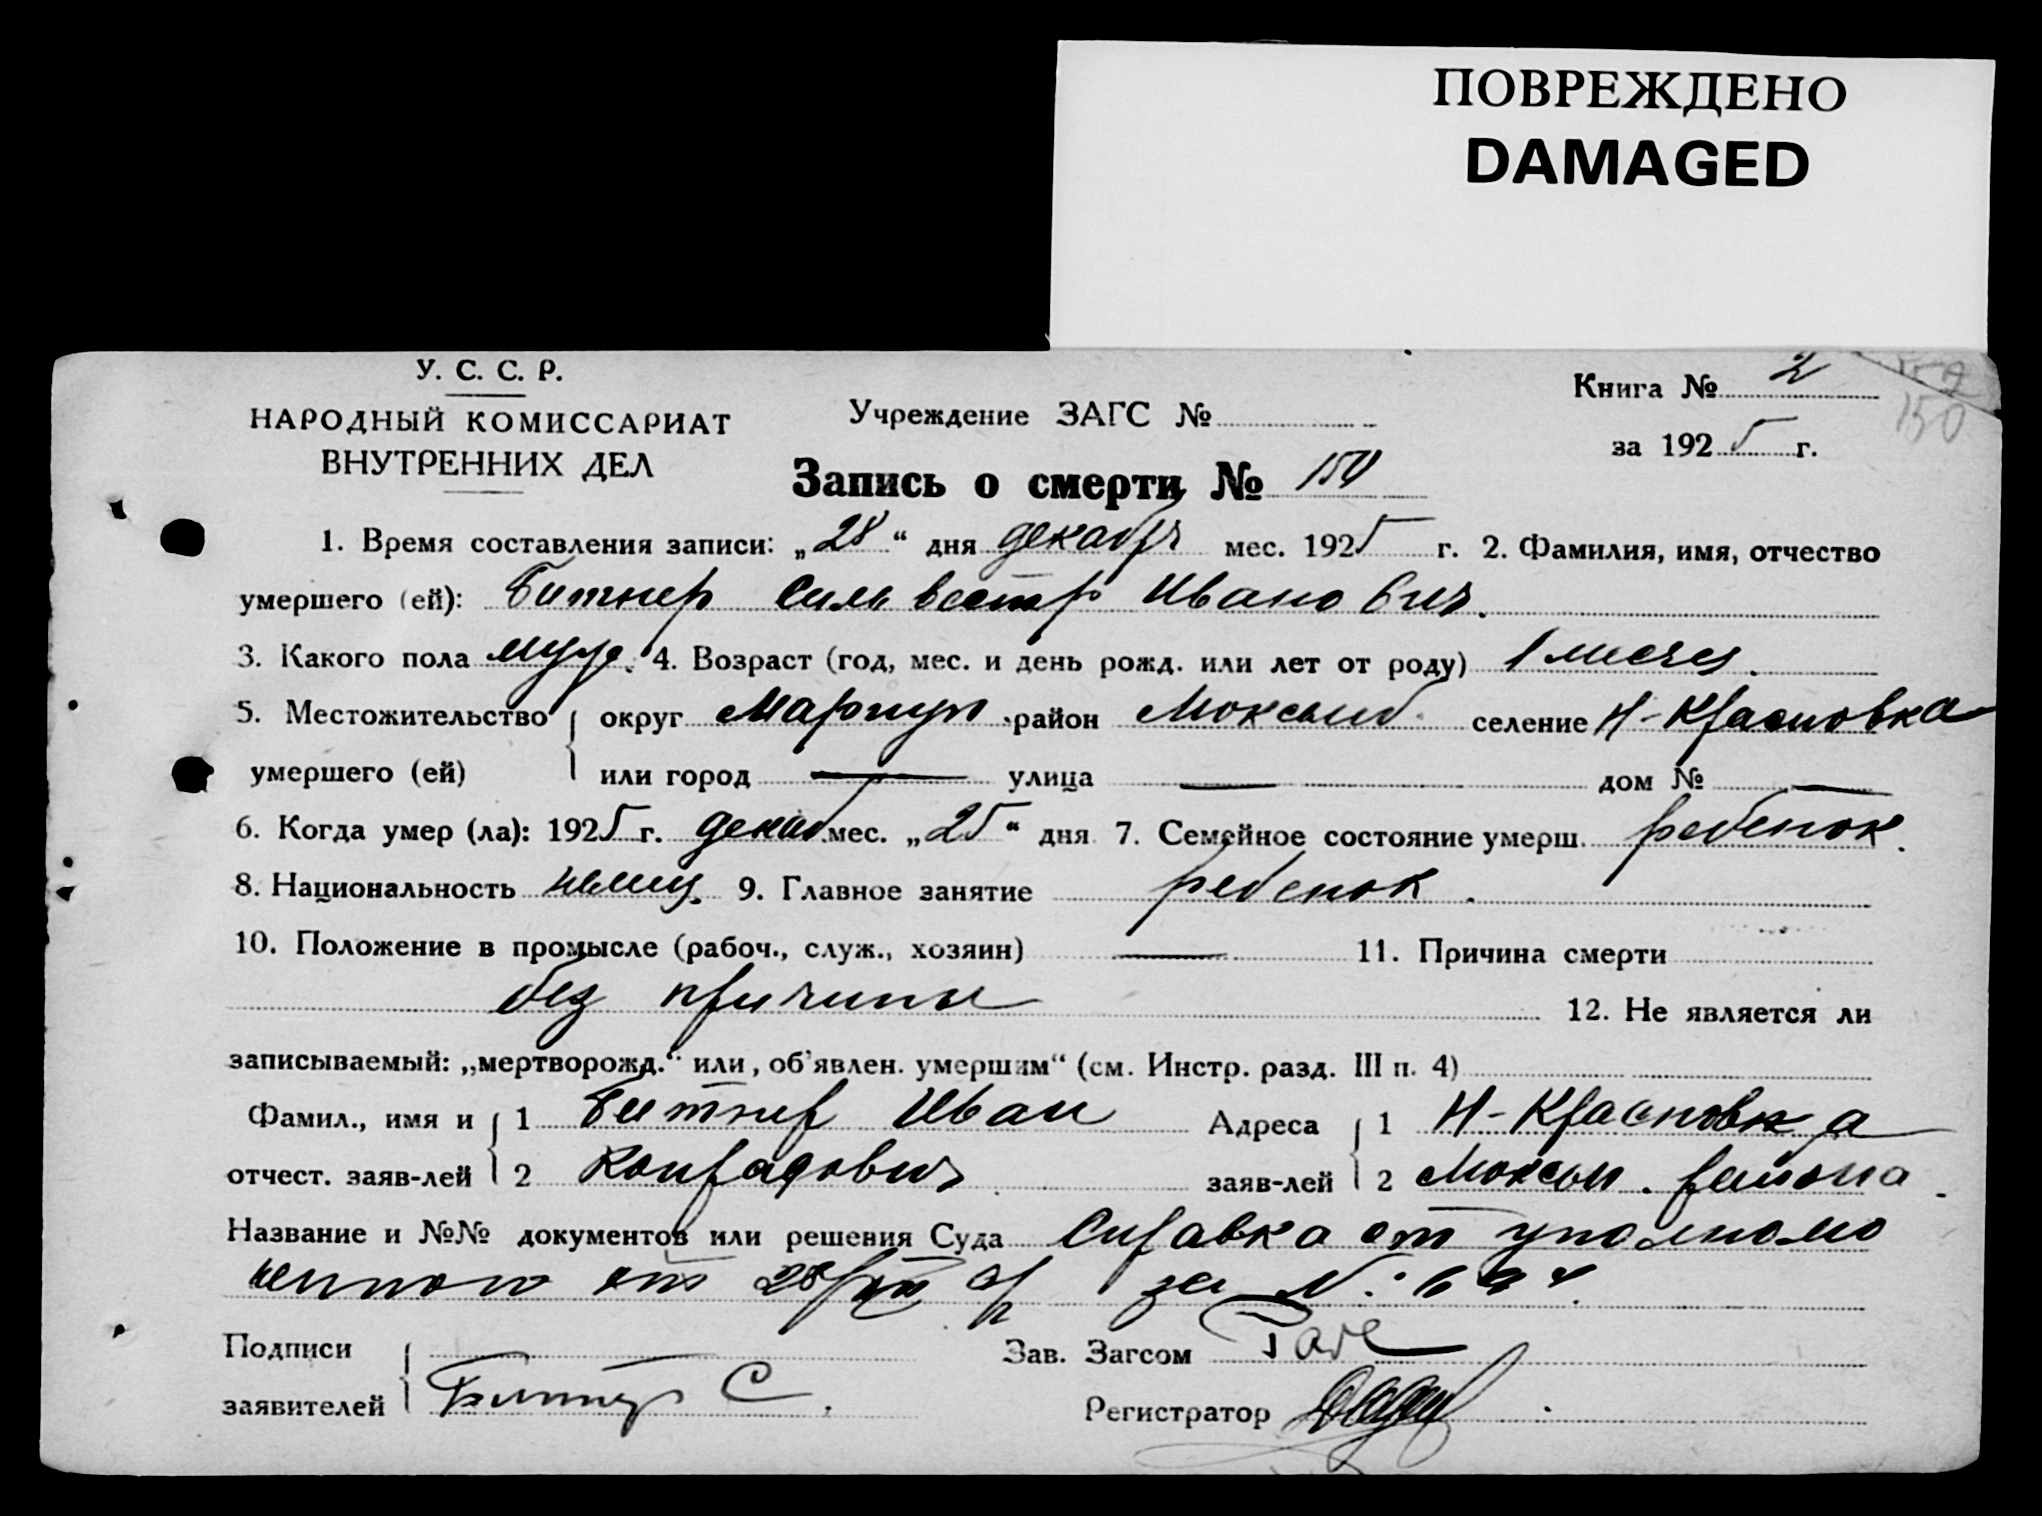 ПОВРЕЖДЕНО
DAMAGED
У. С. С. Р.
НАРОДНЫЙ КОМИССАРИАТ
ВНУТРЕННИХ ДЕЛ
Учреждение ЗАГС №
Книга № 2
за 1925 г.
150
Запись о смерти № 150
1. Время составления записи: „28“ дня декабря мес. 1925 г. 2. Фамилия, имя, отчество
умершего (ей): Битнер Сильвестр Иванович.
3. Какого пола муж. 4. Возраст (год, мес. и день рожд. или лет от роду) 1 месяц.
5. Местожительство округ Мариуп. район селение Н-Красновка
умершего (ей) или город — улица — дом № —
6. Когда умер (ла): 1925 г. декаб. мес. „25“ дня 7. Семейное состояние умерш. ребенок.
8. Национальность немец. 9. Главное занятие ребенок.
10. Положение в промысле (рабоч., служ., хозяин) — 11. Причина смерти
без причины
12. Не является ли
записываемый: „мертворожд.“ или, об'явлен. умершим“ (см. Инстр. разд. III п. 4)
Фамил., имя и 1 Битнер Иван Адреса 1 Н-Красновка
отчест. заяв-лей 2 Конрадович заяв-лей 2 района.
Название и №№ документов или решения Суда Справка от уполномо
ченного от за №:
Подписи Зав. Загсом
заявителей Битнер С. Регистратор